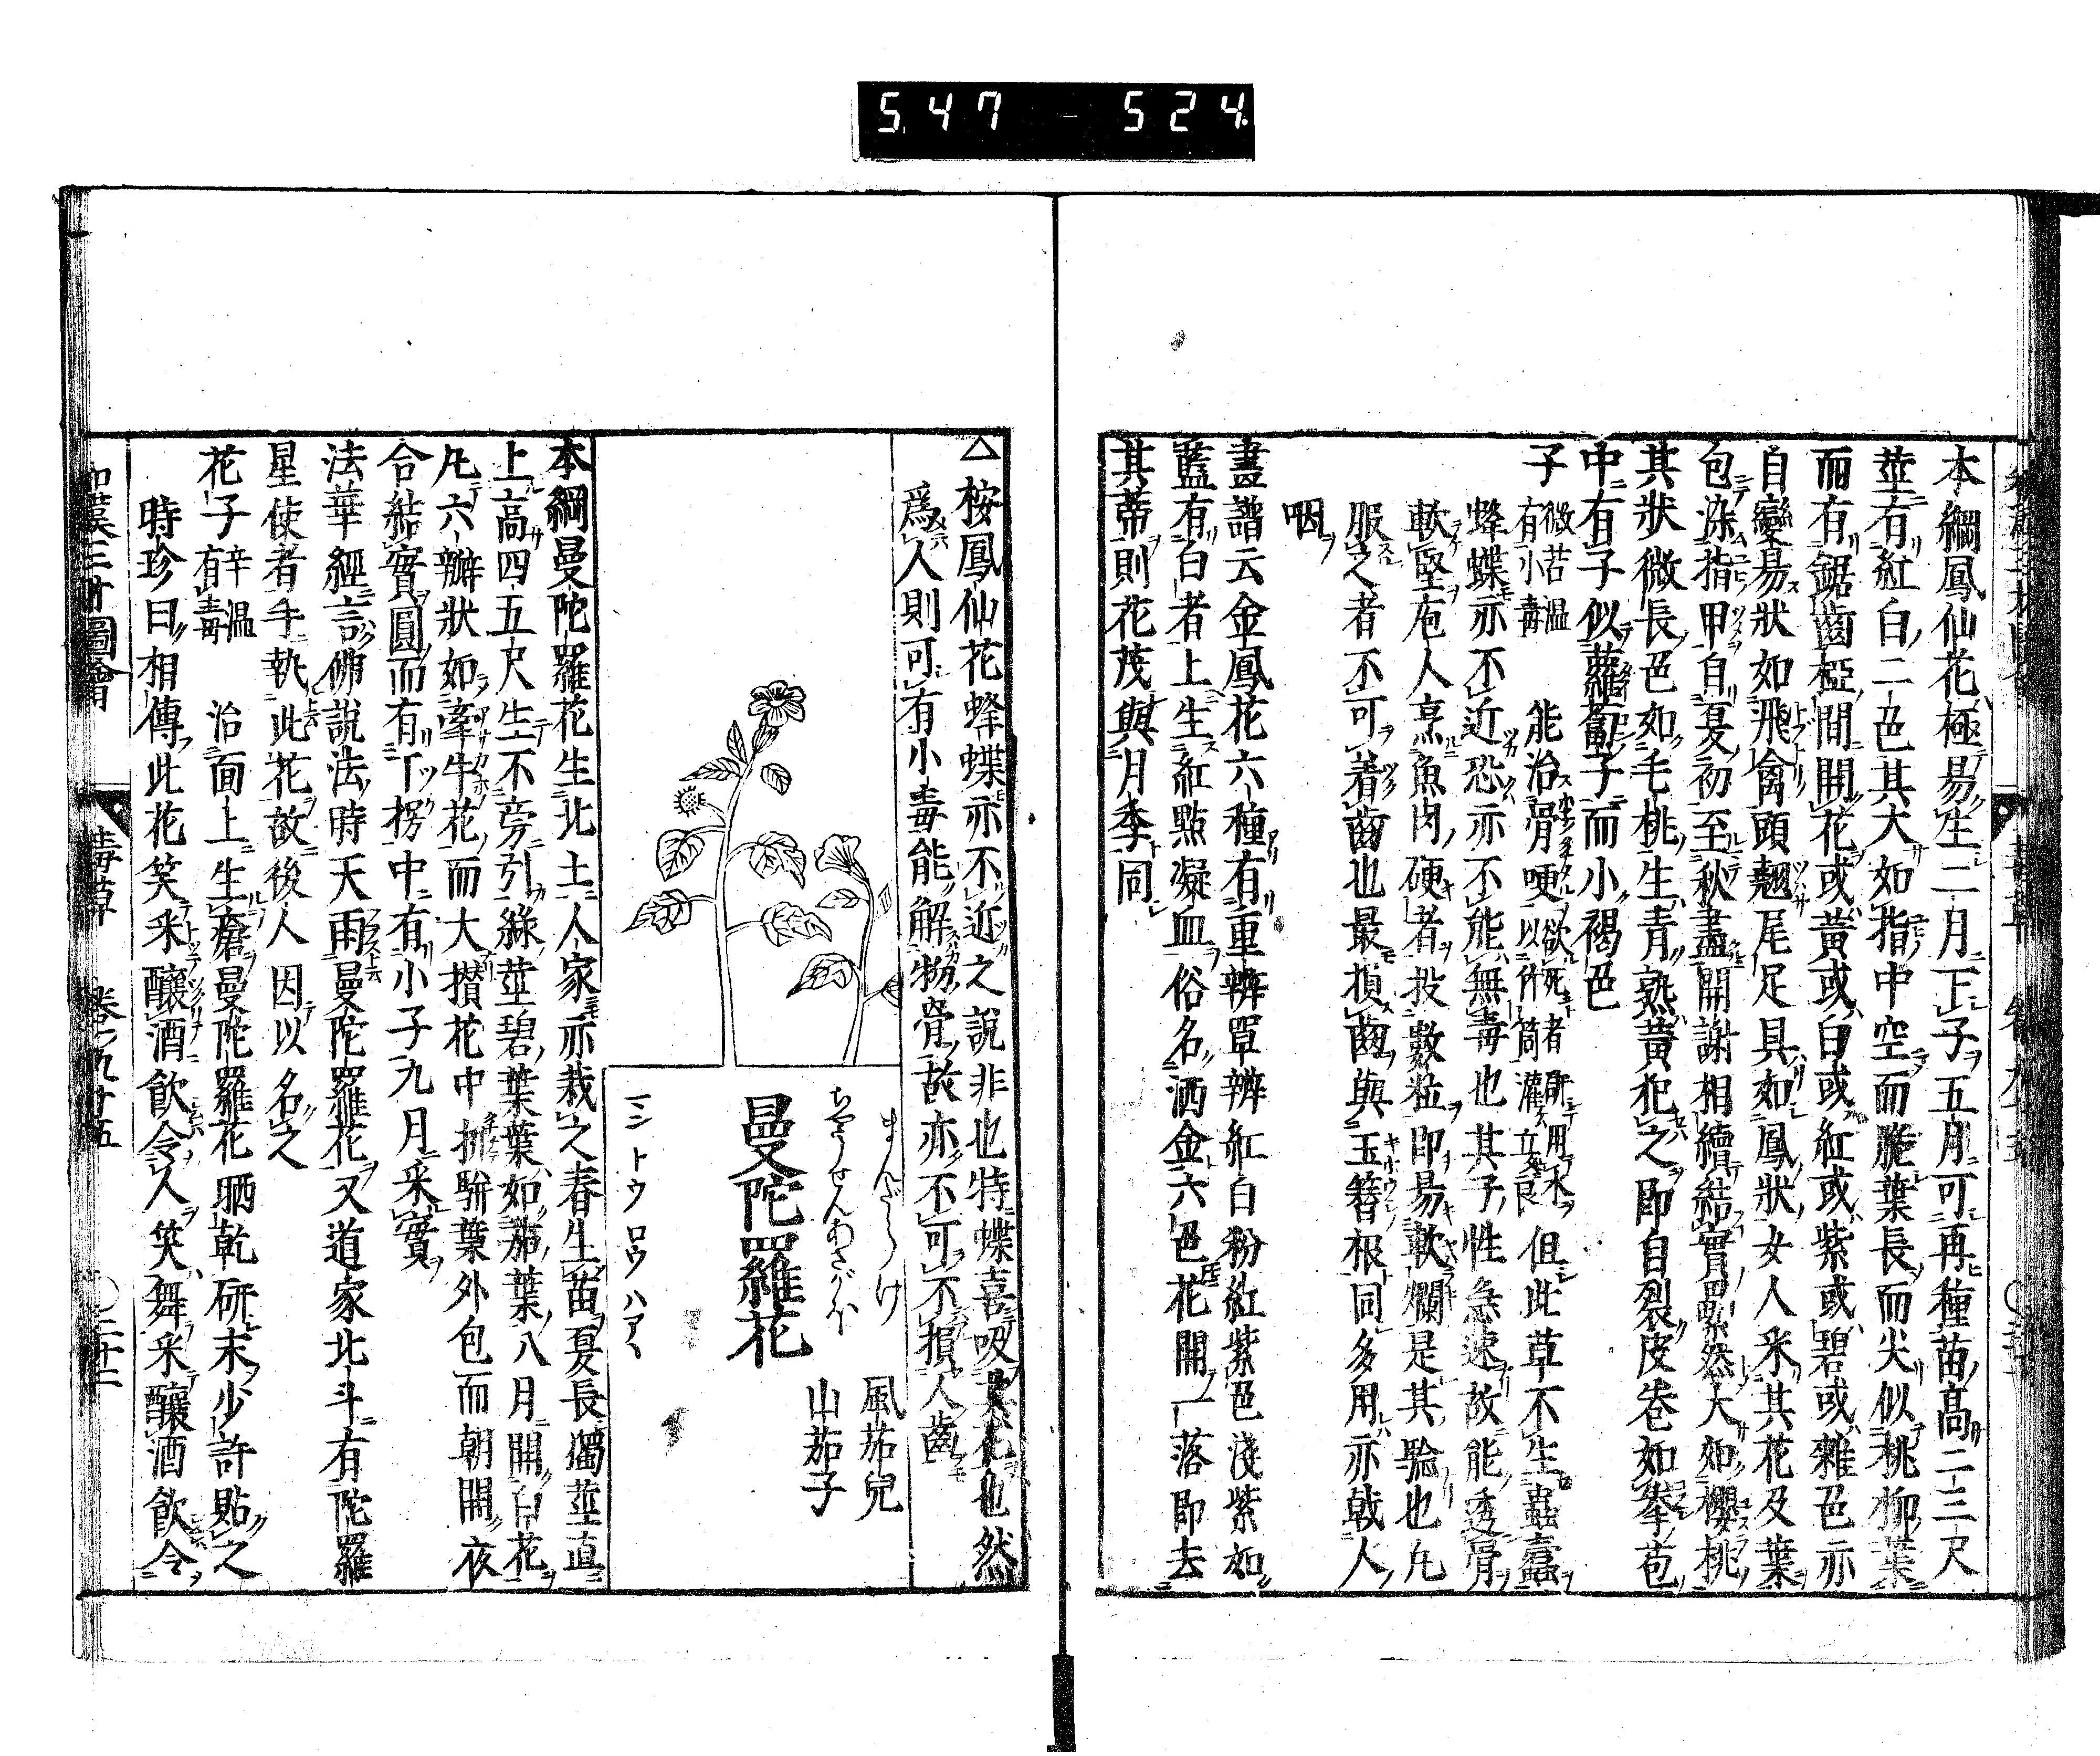 5.47 - 524.
本綱鳳仙花極易生二月下子五月可再種苗高二三尺
莖有紅白二色其大如指中空而脆葉長而尖似桃柳葉
而有鋸齒椏間開花或黃或白或紅或紫或碧或雜色亦
自變易狀如飛禽頭翹尾足具如鳳狀女人采其花及葉
包染指甲自夏初至秋盡開謝相續結實纍然大如櫻桃
其狀微長色如毛桃生青熟黃犯之即自裂皮卷如拳苞
中有子似蘿蔔子而小褐色
子 微苦溫有小毒 能治骨哽 欲死者研用水以竹筒灌立食良 但此草不生蟲蠹
蜂蝶亦不近恐亦不能無毒也其子性急速故能透骨
軟堅庖人烹魚肉硬者投數粒即易軟爛是其驗也凡
服之者不可着齒也最損齒與玉簪根同多用亦戟人
咽
畫譜云金鳳花六種有重瓣單瓣紅白粉紅紫色淺紫如
藍有白者上生紅點凝血俗名洒金六色花開一落即去
其蒂則花茂與月季同
△桉鳳仙花蜂蝶亦不近之說非也特蝶喜吸其花也然
爲人則可有小毒能解物骨故亦不可不損人齒
曼陀羅花
まんだらけ
ちやうせんあさがほ
風茄兒
山茄子
本綱曼陀羅花生北土人家亦栽之春生苗夏長獨莖直
上高四五尺生不旁引綠莖碧葉葉如茄葉八月開白花
凡六瓣狀如牽牛花而大攅花中拆駢葉外包而朝開夜
合結實圓而有丁拐中有小子九月采實
法華經言佛說法時天雨曼陀羅花又道家北斗有陀羅
星使者手執此花故後人因以名之
花子 辛溫有毒 治面上生瘡曼陀羅花晒乾研末少許貼之
時珍曰相傳此花笑采釀酒飲令人笑舞采釀酒飲令
和漢三才圖會 毒草 卷之九十五